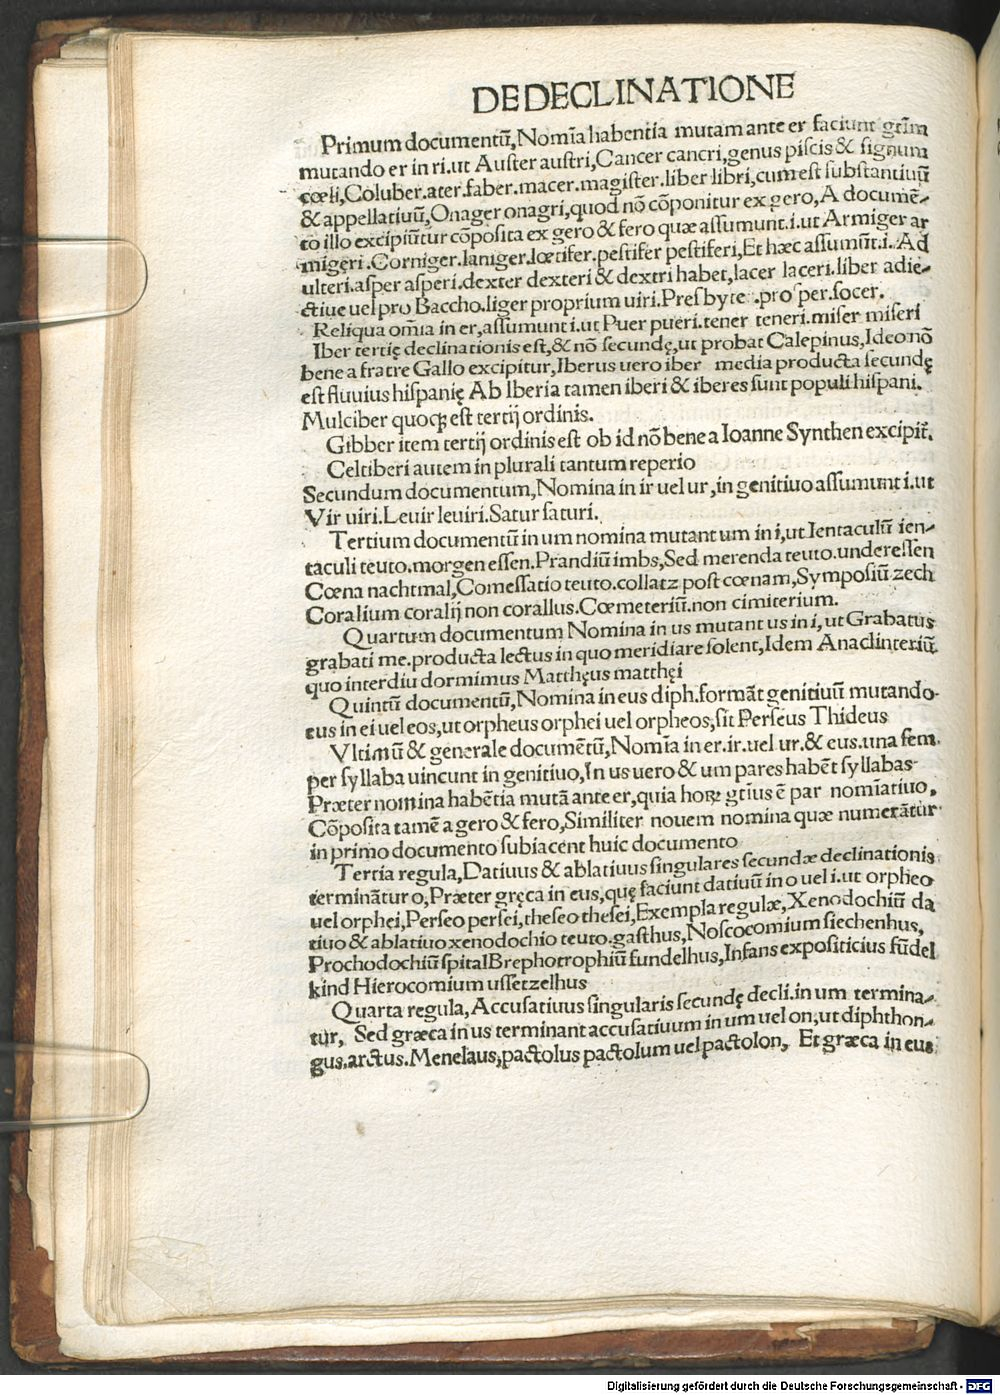 DE DECLINATIONE
Primum documentū, Nomīa habentia mutam ante er faciunt gtīm
mutando er in ri. ut Auster austri, Cancer cancri, genus piscis & signum
cœli, Coluber. ater. faber. macer. magister. liber libri, cum est substantiuū
& appellatiuū, Onager onagri, quod nō cōponitur ex gero, A documē-
to illo excipiūtur cōposita ex gero & fero quæ assumunt .i. ut Armiger ar
migeri. Corniger. laniger. lœtifer. pestifer pestiferi, Et hæc assumūt .i. Ad
ulteri. asper asperi. dexter dexteri & dextri habet, lacer laceri. liber adie-
ctiue uel pro Baccho. liger proprium uiri. Presbyte . prosper. socer.
Reliqua omīa in er, assumunt i. ut Puer pueri. tener teneri. miser miseri
Iber tertię declinationis est, & nō secundę, ut probat Calepinus, Ideo nō
bene a fratre Gallo excipitur, Iberus uero iber media producta secundę
est fluuius hispanię Ab Iberia tamen iberi & iberes sunt populi hispani.
Mulciber quoqꝫ est tertij ordinis.
Gibber item tertij ordinis est ob id nō bene a Ioanne Synthen excipit̄.
Celtiberi autem in plurali tantum reperio
Secundum documentum, Nomina in ir uel ur, in genitiuo assumunt i. ut
Vir uiri. Leuir leuiri. Satur saturi.
Tertium documentū in um nomina mutant um in i, ut Ientaculū ien-
taculi teuto. morgen essen. Prandiū imbs, Sed merenda teuto. underessen
Cœna nachtmal, Comessatio teuto. collatz post cœnam, Symposiū zech
Coralium coralij non corallus. Cœmeteriū. non cimiterium.
Quartum documentum Nomina in us mutant us in i, ut Grabatus
grabati me. producta lectus in quo meridiare solent, Idem Anaclinteriū
quo interdiu dormimus Matthęus matthęi
Quintū documentū, Nomina in eus diph. formāt genitiuū mutando
eus in ei uel eos, ut orpheus orphei uel orpheos, sit Perseus Thideus
Vltimū & generale documētū, Nomīa in er. ir. uel ur. & eus. una sem
per syllaba uincunt in genitiuo, In us uero & um pares habēt syllabas
Præter nomina habētia mutā ante er, quia horꝝ gtīus ē par nomīatiuo,
Cōposita tamē a gero & fero, Similiter nouem nomina quæ numerātur
in primo documento subiacent huic documento
Tertia regula, Datiuus & ablatiuus singulares secundæ declinationis
terminātur o, Præter gręca in eus, quę faciunt datiuū in o uel i. ut orpheo
uel orphei, Perseo persei, theseo thesei, Exempla regulæ, Xenodochiū da
tiuo & ablatiuo xenodochio teuto. gasthus, Noscocomium siechenhus,
Prochodochiū spital Brephotrophiū fundelhus, Infans expositicius fūdel
kind Hierocomium ussetzelhus
Quarta regula, Accusatiuus singularis secundę decli. in um termina-
tur, Sed græca in us terminant accusatiuum in um uel on, ut diphthon-
gus. arctus. Menelaus, pactolus pactolum uel pactolon, Et græca in eus
Digitalisierung gefördert durch die Deutsche Forschungsgemeinschaft - DFG